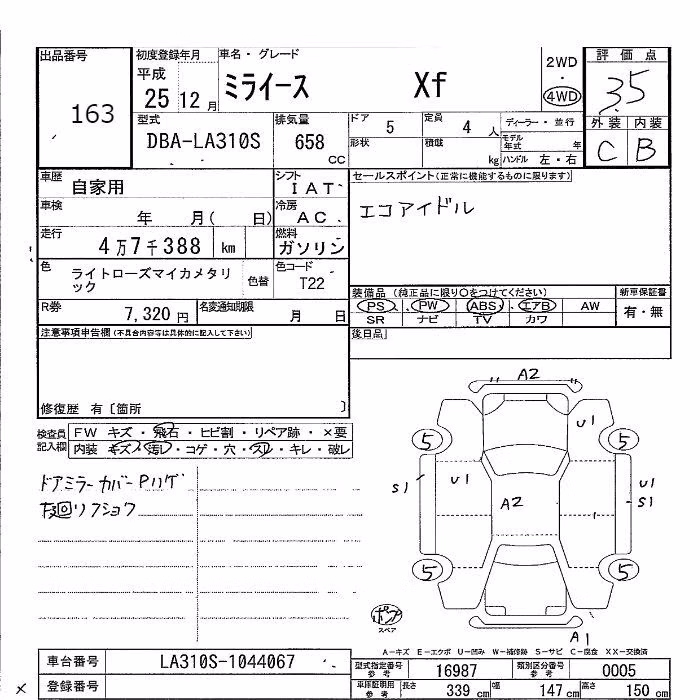 出品番号 163
初度登録年月 平成 25 12 月
車名・グレード ミライース Xf
2WD ・ 4WD
評価点 3.5
外装 C 内装 B
型式 DBA-LA310S
排気量 658 cc
ドア 5
定員 4 人
形状
積載 kg
ディーラー・並行
モデル年式 年
ハンドル 左・右
車歴 自家用
シフト IAT
セールスポイント(正常に機能するものに限ります)
エコアイドル
車検 年 月( 日)
冷房 AC
走行 4万7千388 km
燃料 ガソリン
色 ライトローズマイカメタリック
色替
色コード T22
装備品 (純正品に限り〇をつけてください)
PS PW ABS エアB AW
SR ナビ TV カワ
新車保証書 有・無
R券 7,320 円
名変通知期限 月 日
後日品
注意事項申告欄(不具合内容等は具体的に記入して下さい)
修復歴 有〔箇所 〕
検査員記入欄
FW キズ・飛石・ヒビ割・リペア跡・×要
内装 キズ・汚レ・コゲ・穴・スレ・キレ・破レ
ドアミラーカバーPハゲ
A2
U1
5
5
S1
U1
A2
U1
S1
5
5
A1
スペア
A-キズ E-エクボ U-凹み W-補修跡 S-サビ C-腐食 XX-交換済
車台番号 LA310S-1044067
登録番号
型式指定番号 参考 16987
類別区分番号 参考 0005
車庫証明用 参考 長さ 339 cm 幅 147 cm 高さ 150 cm
×